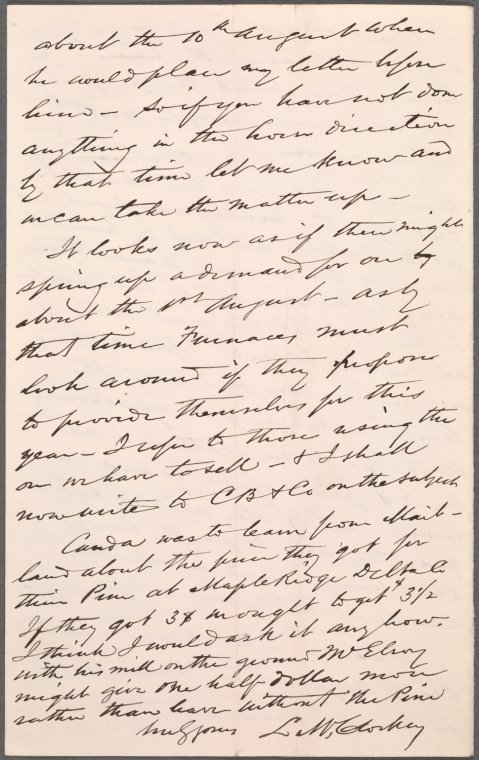 about the 10th August when
he would place my letter before
him - So if you have not done
anything in the horn direction
by that time let me know and
we can take the matter up -
It looks now as if there might
spring up a demand for ore by
about the 1st August - as by
that time Furnaces must
look around if they propose
to provide themselves for this
year - I refer to those using the
ore we have to sell - & I shall
now write to C B & Co on the subject
Canda was to learn from Mait-
land about the price they got for
their Pine at Maple Ridge Delta Co
If they got 3$ we ought to get $3 1/2
I think I would ask it any how.
with his mill on the ground McElroy
might give one half dollar more
rather than leave without the Pine
truly yours L McCloskey